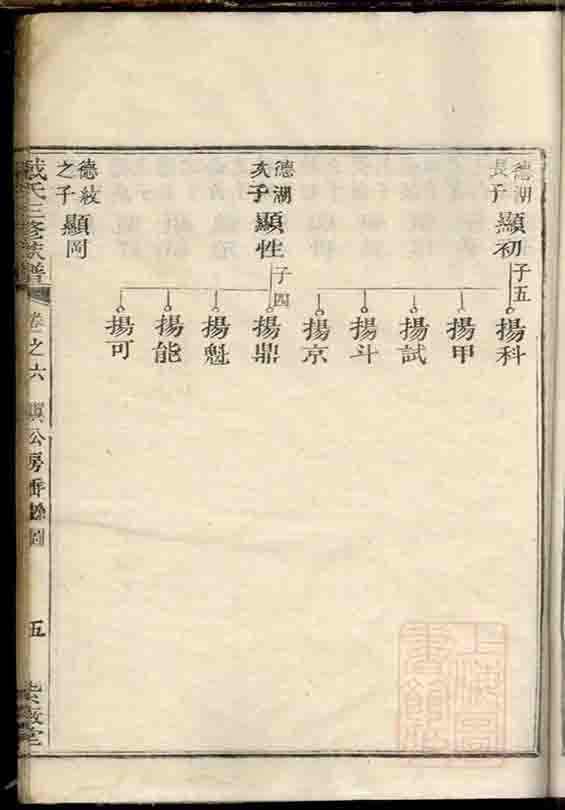 德湖
長子
顯初
子五
揚科
揚甲
揚試
揚斗
揚京
德湖
次子
顯性
子四
揚鼎
揚魁
揚能
揚可
德紋
之子
顯岡
戴氏三修族譜
卷之六
公房
圖
五
堂
上海圖書館藏